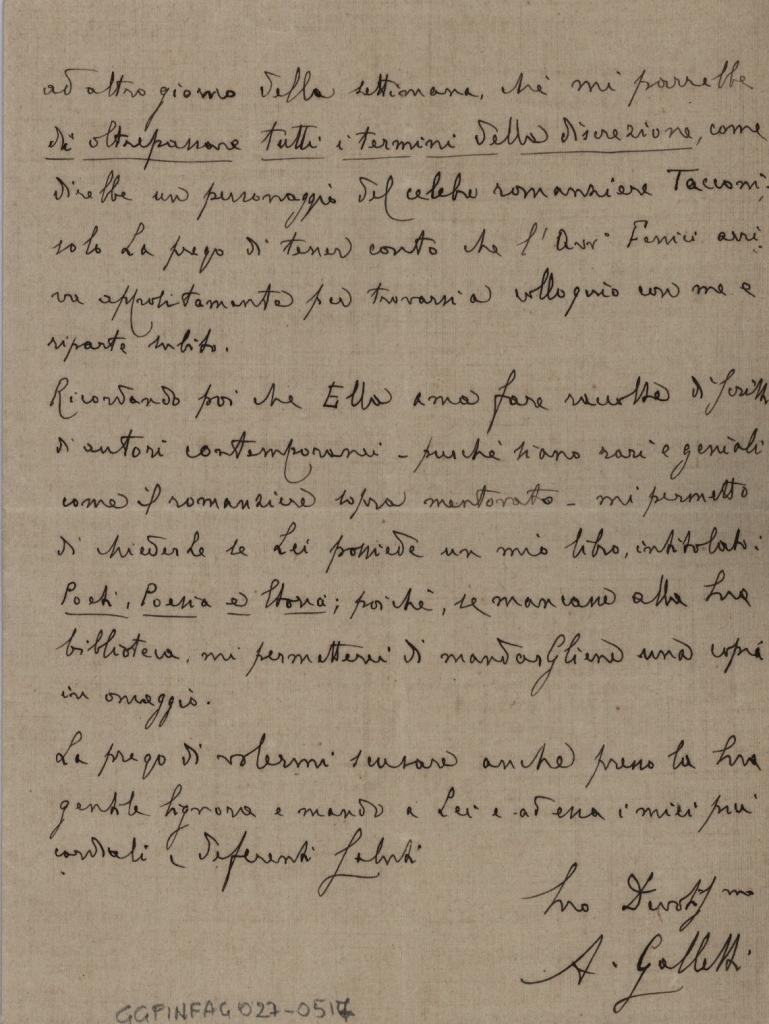 ad altro giorno della settimana, chè mi parrebbe
di oltrepassare tutti i termini della discrezione, come
direbbe un personaggio del celebre romanziere Tacconi;
solo La prego di tener conto che l'Avv. Fenici arri-
va appositamente per trovarsi a colloquio con me e
riparte subito.
Ricordando poi che Ella ama fare raccolta di scritti
di autori contemporanei - purchè siano rari e geniali
come il romanziere sopra mentovato - mi permetto
di chiederLe se Lei possiede un mio libro, intitolato:
Poeti, Poesia e Storia; poichè, se mancasse alla Sua
biblioteca, mi permetterei di mandarGliene una copia
in omaggio.
La prego di volermi scusare anche presso la Sua
gentile Signora e mando a Lei e ad essa i miei più
cordiali e deferenti Saluti
Suo Devotiss mo
A. Galletti
GGPINFAG 027-0517